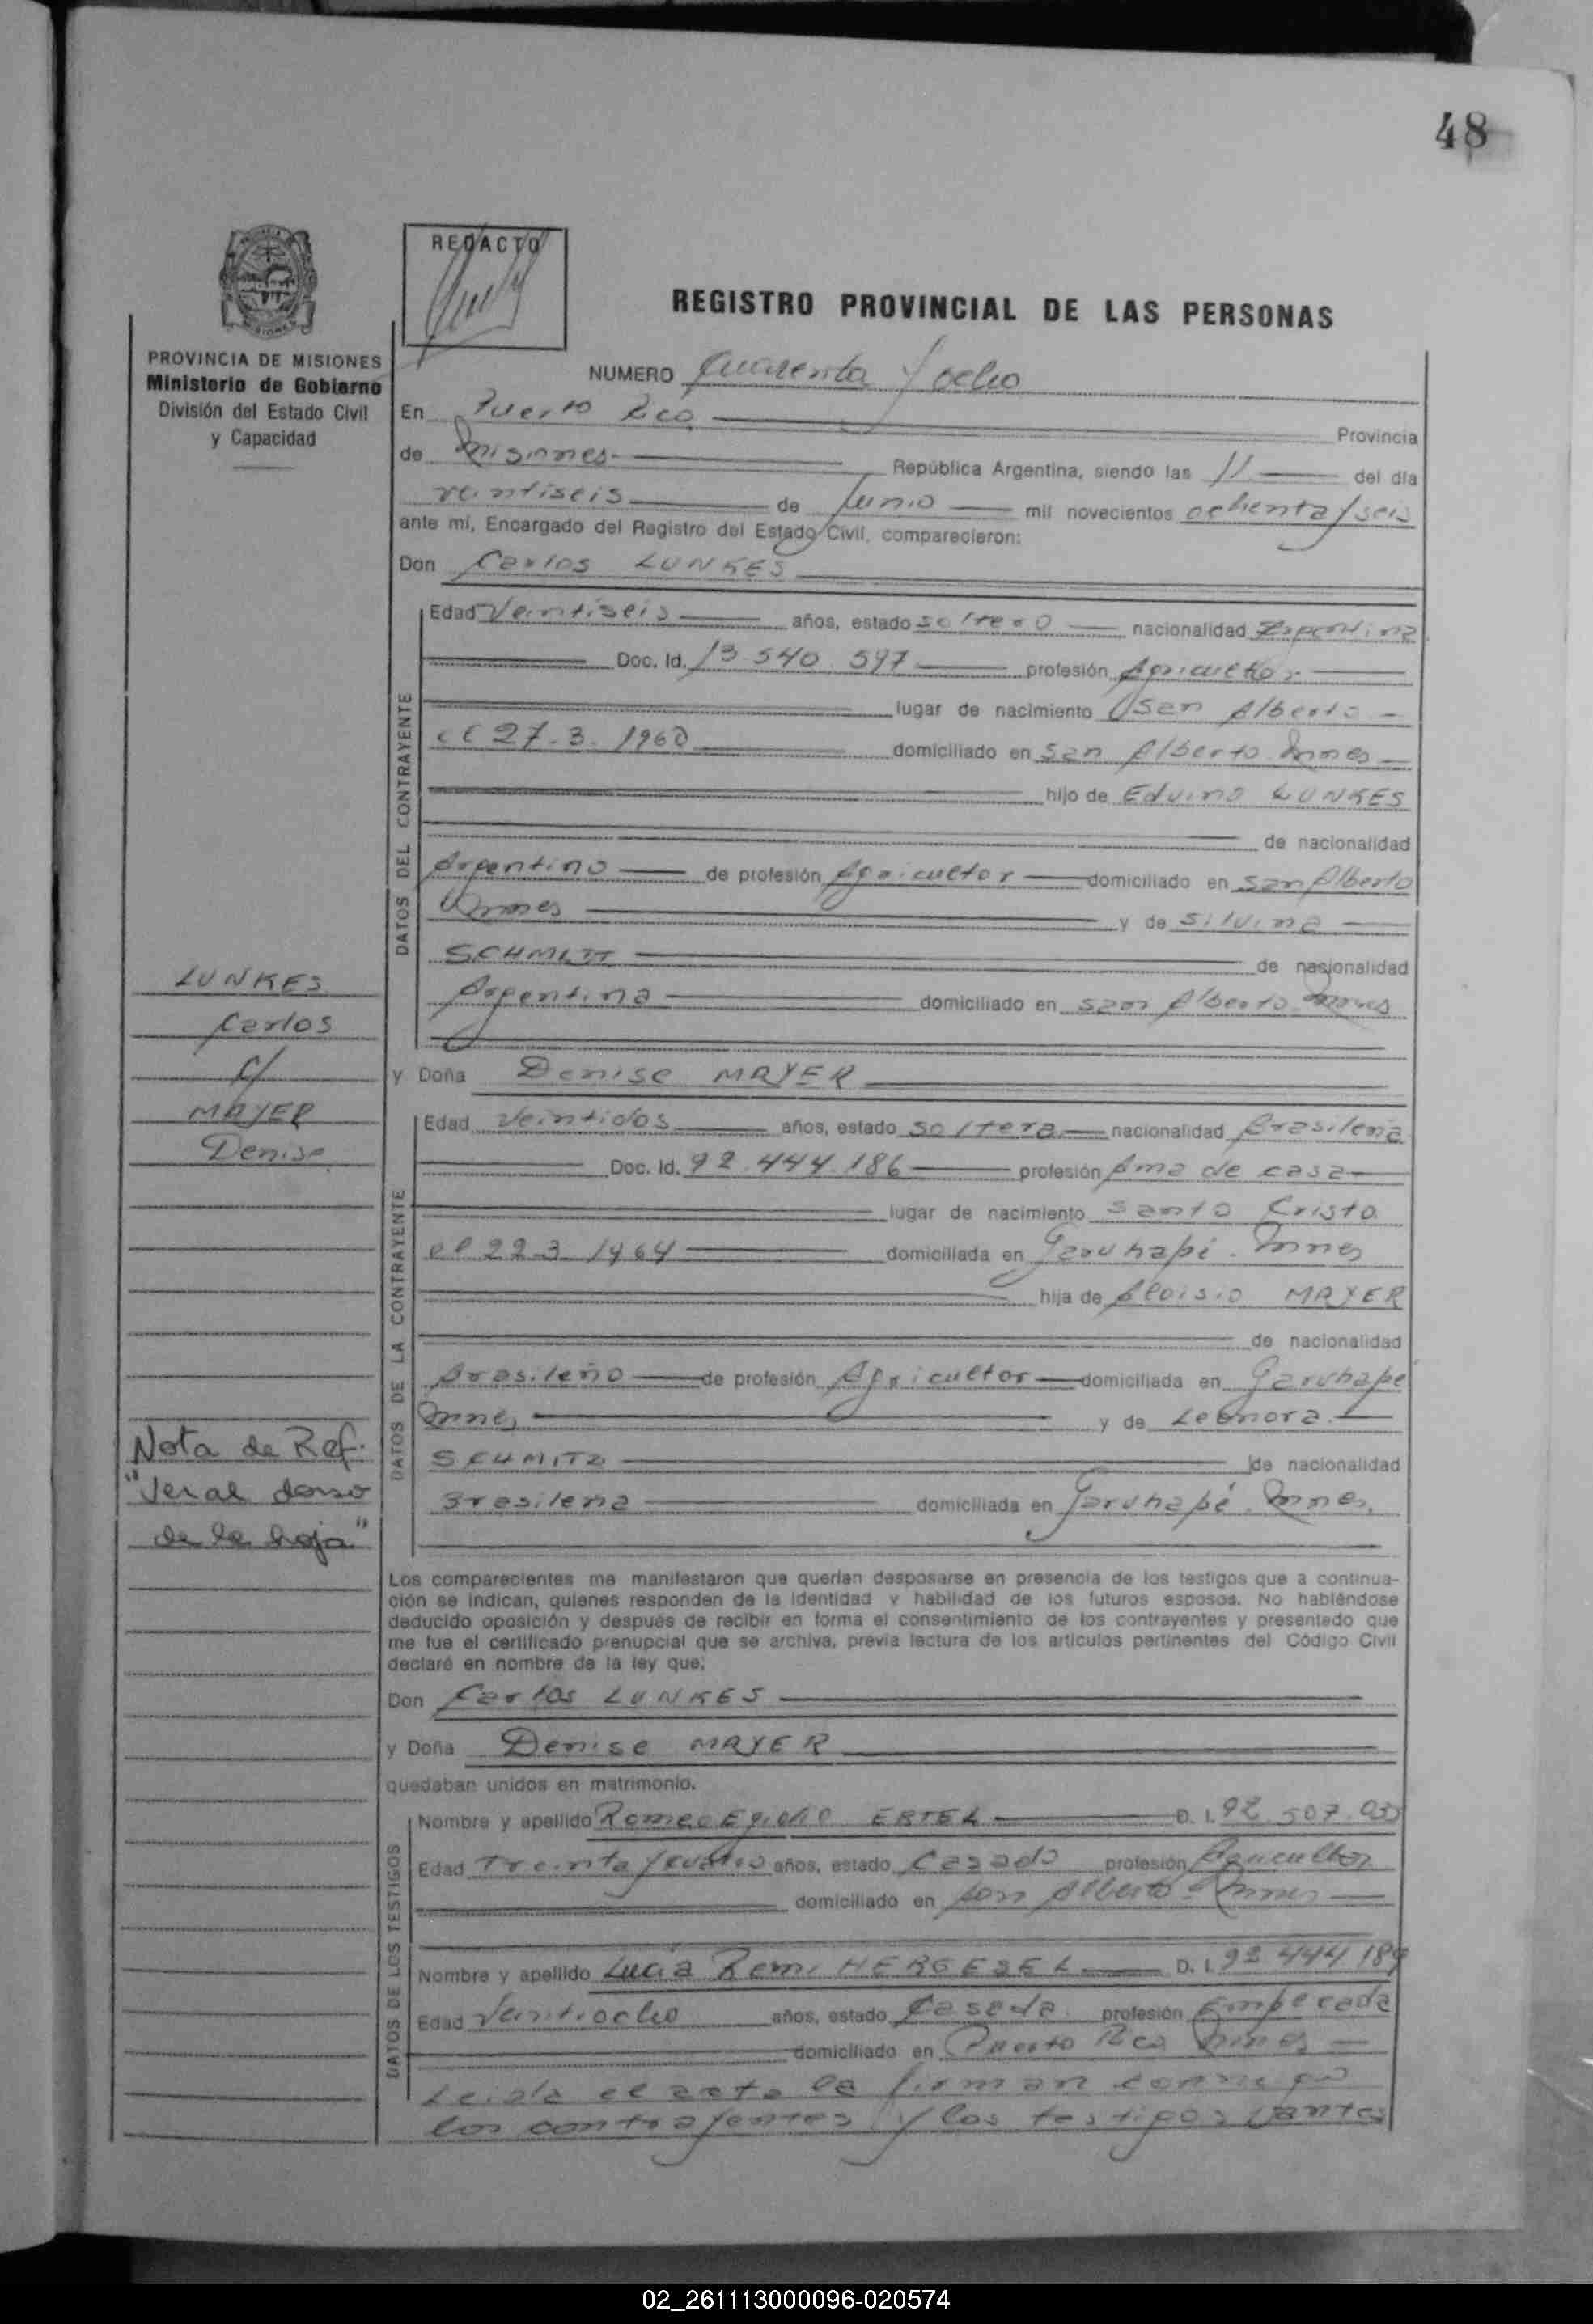 48
REDACTO
REGISTRO PROVINCIAL DE LAS PERSONAS
PROVINCIA DE MISIONES
Ministerio de Gobierno
División del Estado Civil
y Capacidad
NUMERO Cuarenta y ocho
En Puerto Rico Provincia
de Misiones República Argentina, siendo las 11 del día
veintiseis de Junio mil novecientos ochenta y seis
ante mí, Encargado del Registro del Estado Civil, comparecieron:
Don Carlos LUNKES
DATOS DEL CONTRAYENTE
Edad Veintiseis años, estado soltero nacionalidad Argentina
Doc. Id. 13.540.597 profesión Agricultor
lugar de nacimiento San Alberto
el 27-3-1960 domiciliado en San Alberto Mnes
hijo de Eduino LUNKES
de nacionalidad
Argentino de profesión Agricultor domiciliado en San Alberto
Mnes y de Silvina
SCHMITT de nacionalidad
Argentina domiciliado en San Alberto Mnes
LUNKES
Carlos
c/
MAYER
Denise
y Doña Denise MAYER
DATOS DE LA CONTRAYENTE
Edad Veintidos años, estado soltera nacionalidad Brasileña
Doc. Id. 92.444.186 profesión Ama de casa
lugar de nacimiento Santo Cristo
el 22-3-1964 domiciliada en Garuhapé. Mnes
hija de Aloisio MAYER
de nacionalidad
Brasileño de profesión Agricultor domiciliada en Garuhape
Mnes y de Leonora
SCHMITZ de nacionalidad
Brasileña domiciliada en Garuhapé. Mnes.
Nota de Ref.
"Ver al dorso
de la hoja"
Los comparecientes me manifestaron que querían desposarse en presencia de los testigos que a continua-
ción se indican, quienes responden de la identidad y habilidad de los futuros esposos. No habiéndose
deducido oposición y después de recibir en forma el consentimiento de los contrayentes y presentado que
me fue el certificado prenupcial que se archiva, previa lectura de los artículos pertinentes del Código Civil
declaré en nombre de la ley que:
Don Carlos LUNKES
y Doña Denise MAYER
quedaban unidos en matrimonio.
DATOS DE LOS TESTIGOS
Nombre y apellido Romeo Egidio ERTEL D. I. 92.507.03
Edad Treinta y cuatro años, estado Casado profesión Agricultor
domiciliado en San Alberto - Mnes
Nombre y apellido Lucia Remi HERGESEL D. I. 92 444 189
Edad Veintiocho años, estado Casada profesión Empleada
domiciliado en Puerto Rico Mnes
Leida el acta la firman conmigo
los contrayentes y los testigos antes
02_261113000096-020574